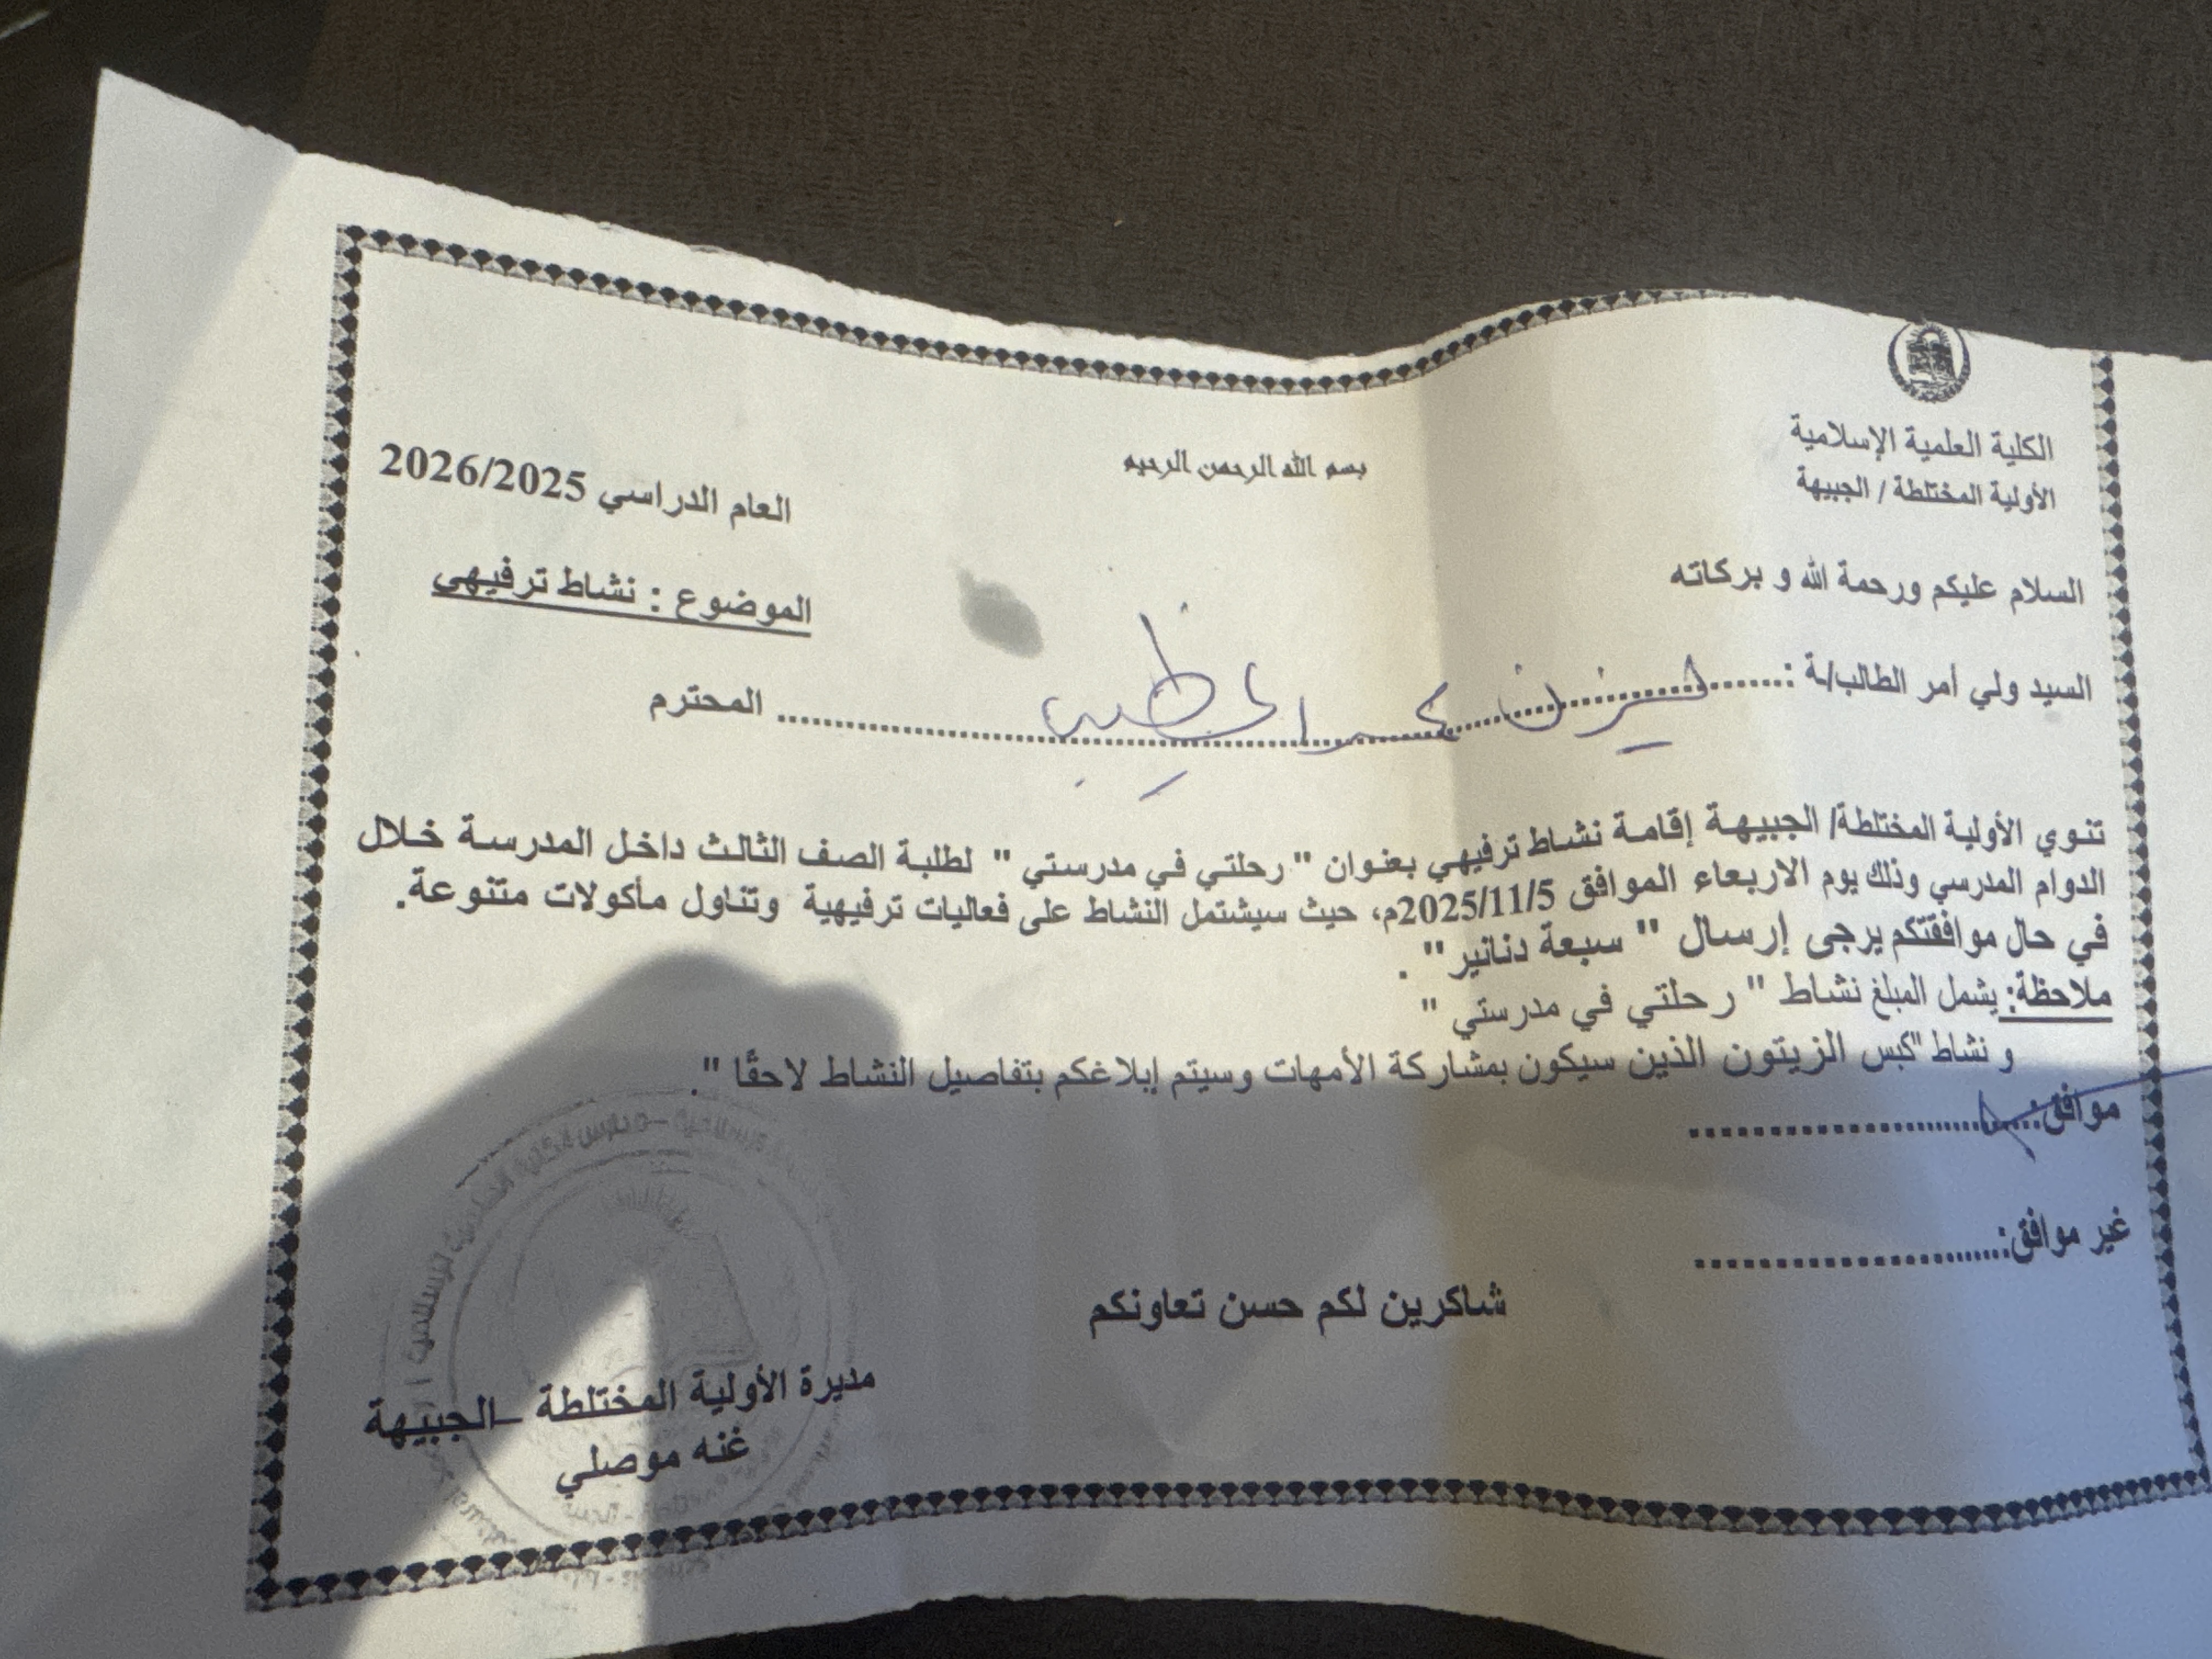 الكلية العلمية الإسلامية
الأولية المختلطة / الجبيهة
بسم الله الرحمن الرحيم
العام الدراسي 2026/2025
السلام عليكم ورحمة الله و بركاته
الموضوع : نشاط ترفيهي
السيد ولي أمر الطالب/ة :..... الخطيب ..... المحترم
تنوي الأولية المختلطة/ الجبيهة إقامة نشاط ترفيهي بعنوان " رحلتي في مدرستي " لطلبة الصف الثالث داخل المدرسة خلال
الدوام المدرسي وذلك يوم الاربعاء الموافق 2025/11/5م، حيث سيشتمل النشاط على فعاليات ترفيهية وتناول مأكولات متنوعة.
في حال موافقتكم يرجى إرسال " سبعة دنانير" .
ملاحظة: يشمل المبلغ نشاط " رحلتي في مدرستي "
و نشاط "كبس الزيتون الذين سيكون بمشاركة الأمهات وسيتم إبلاغكم بتفاصيل النشاط لاحقًا ".
موافق:..............................
غير موافق:..............................
شاكرين لكم حسن تعاونكم
مديرة الأولية المختلطة – الجبيهة
غنه موصلي